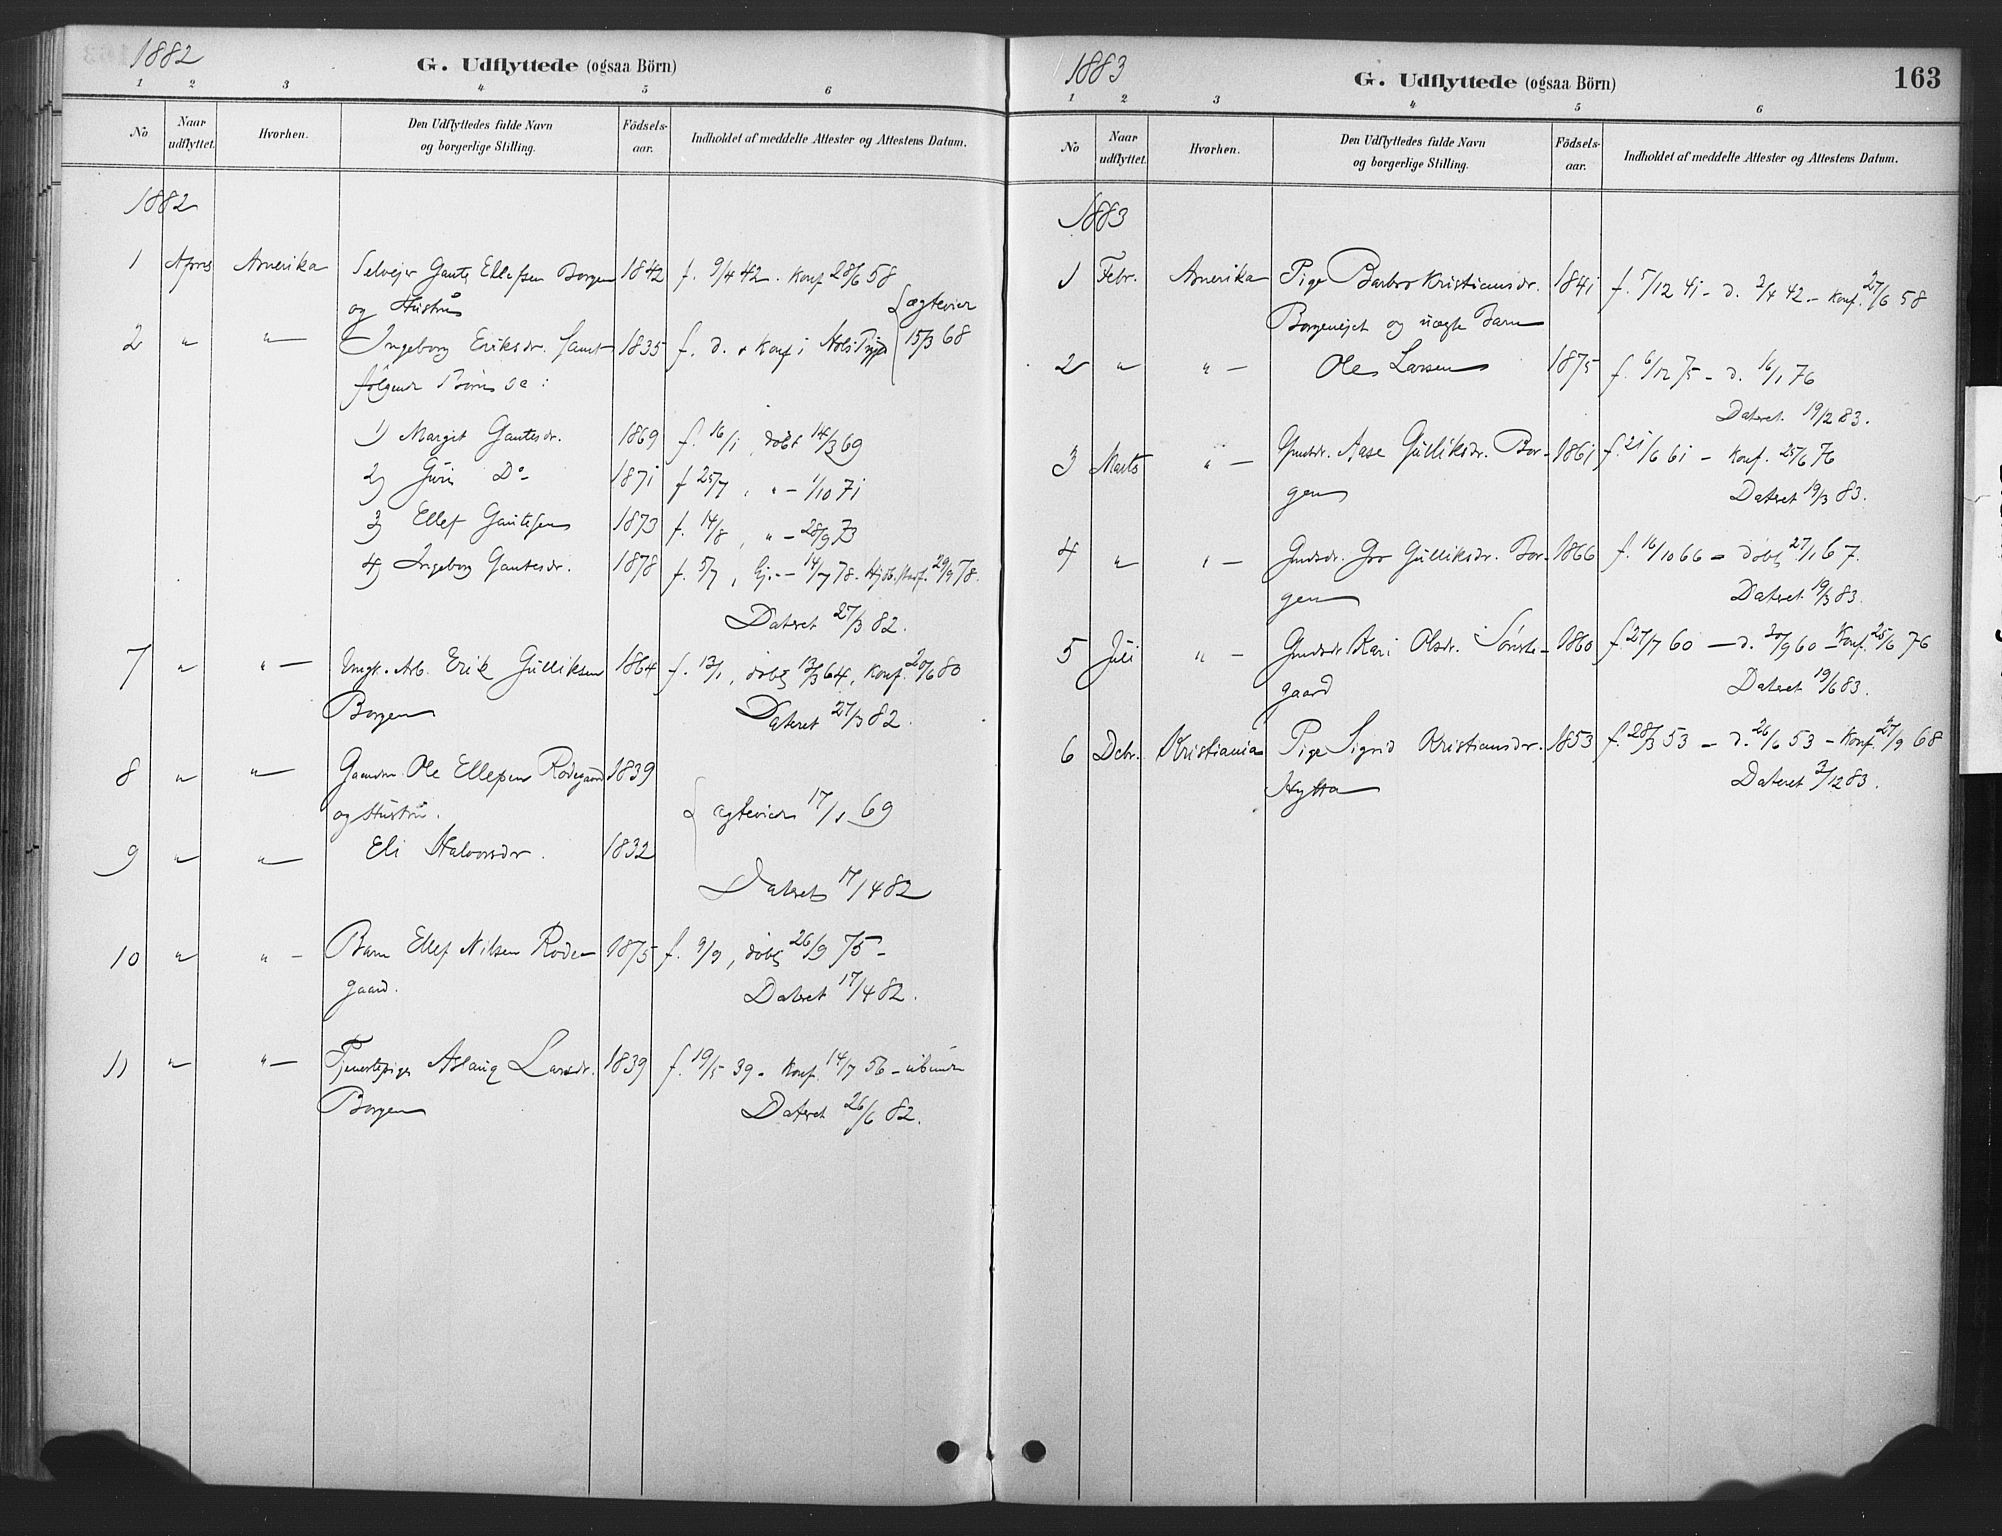 1882
G. Udflyttede (ogsaa Börn)
1 2 3 4 5 6
No
Naar udflyttet.
Hvorhen.
Den Udflyttedes fulde Navn og borgerlige Stilling.
Födsels-aar.
Indholdet af meddelte Attester og Attestens Datum.
1882
1 April Amerika Selvejer Gaute Ellefsen Borgen 1842 f. 9/4 42. Konf 28/6 58
og Hustru {ægteviet
2 " " — Ingeborg Eriksdr. samt 1835 f. d. & Konf i 15/3 68
følgende Børn
1) Margit Gautesdr. 1869 f. 16/1, døbt 14/3 69
2) Guri Do 1871 f 25/7, " — 1/10 71
3) Ellef Gautesen 1873 f. 14/8, " — 28/9 73
4) Ingeborg Gautesdr. 1878 f. 5/7, Hj. — 14/7 78. 29/9 78.
Dateret 27/3 82.
7 " " — Ungk. Arb. Erik Gulliksen 1864 f. 12/1, døbt 13/3 64, Konf. 20/6 80
Borgen Dateret 27/3 82.
8 " " — Gaardm. Ole Ellefsen Rodegaard 1839
og Hustru. {ægteviede 17/1 69
9 " " — Eli Halvorsdr. 1832
Dateret 17/4 82
10 " " — Barn Ellef Nilsen Rode- 1875 f. 9/9, døbt 26/9 75 —
gaard. Dateret 17/4 82.
11 " " — Tjenestepige Aslaug Larsdr. 1839 f. 19/5 39 - Konf. 14/7 56 -
Borgen Dateret 26/6 82.
1883
G. Udflyttede (ogsaa Börn)
163
1 2 3 4 5 6
No
Naar udflyttet.
Hvorhen.
Den Udflyttedes fulde Navn og borgerlige Stilling.
Födsels-aar.
Indholdet af meddelte Attester og Attestens Datum.
1883
1 Febr. Amerika Pige Barbro Kristiansdr. 1841 f. 5/12 41 - d. 2/4 42 - Konf. 27/6 58
Borgenejet og uægte Barn
2 " " — Ole Larsen 1875 f. 6/12 75 - d. 16/1 76
Dateret 19/2 83.
3 Marts " — Gmdsdr. Aase Gulliksdr. Bor- 1861 f. 21/6 61 - Konf. 25/6 76
gen Dateret 19/3 83.
4 " " — Gmdsdr. Gro Gulliksdr. Bor- 1866 f. 16/10 66 - døbt 27/1 67.
gen Dateret 19/3 83.
5 Juli " — Gmdsdr Kari Olsdr. Sørste- 1860 f 27/7 60 — d. 20/9 60 - Konf. 25/6 76
gaard Dateret 19/6 83.
6 Dcbr. Kristiania Pige Sigrid Kristiansdr. 1853 f. 28/3 53 - d. 26/6 53 - Konf. 27/9 68
Hytta Dateret 3/12 83.